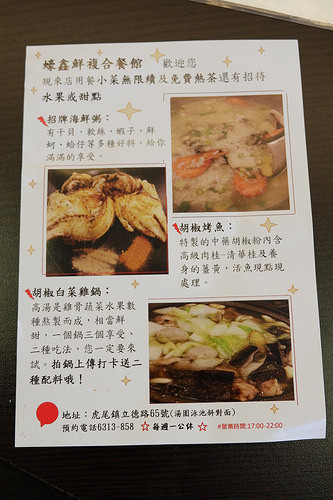 蠔鑫鮮複合餐館 歡迎您
現來店用餐小菜無限續及免費熱茶還有招待
水果或甜點
招牌海鮮粥：
有干貝、軟絲、蝦子、鮮
蚵、蛤仔等多種好料，給你
滿滿的享受。
胡椒烤魚：
特製的中藥胡椒粉內含
高級肉桂-清華桂及養
身的薑黃，活魚現點現
處理。
胡椒白菜雞鍋：
高湯是雞骨蔬菜水果數
種熬製而成，相當鮮
甜，一個鍋三個享受、
二種吃法，您一定要來
試。拍鍋上傳打卡送二
種配料哦！
地址：虎尾鎮立德路65號(湯園泳池斜對面)
預約電話6313-858 ☆每週一公休☆ #營業時間:17:00-22:00